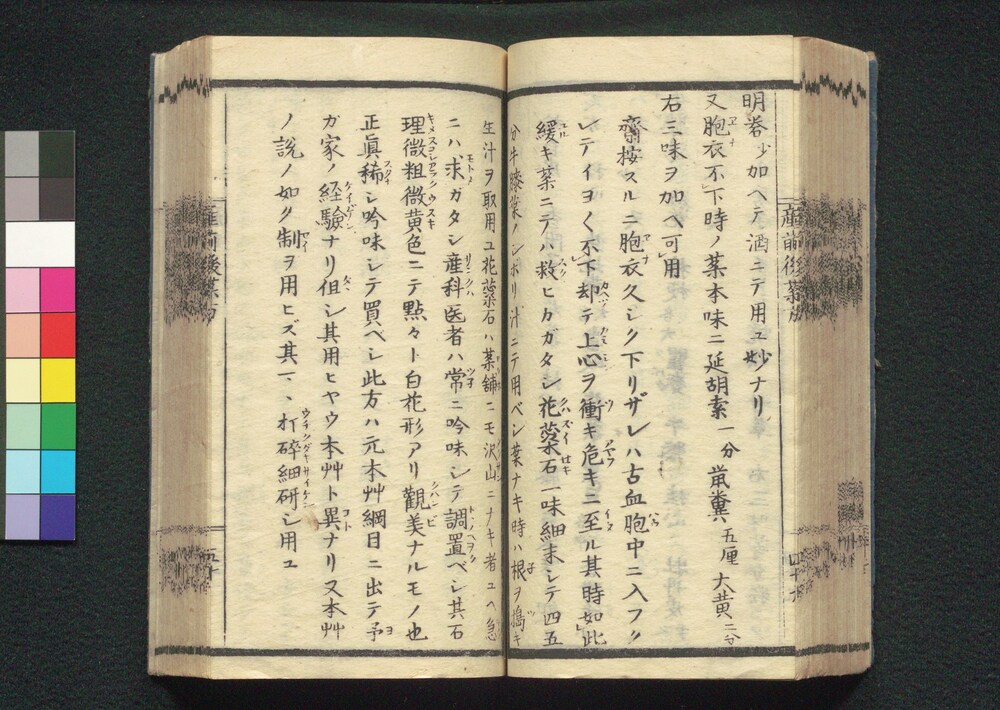 明礬少加ヘテ酒ニテ用ユ妙ナリ
又胞衣不下時ノ薬本味ニ延胡索一分 鼠糞五厘 大黄二分
右三味ヲ加ヘ可用
齋按スルニ胞衣久シク下リザレハ古血胞中ニ入フ
シテイヨく不下却テ上心ヲ衝キ危キニ至ル其時如此
緩キ薬ニテハ救ヒカガタシ花蘂石一味細末シテ四五
分牛膝葉ノシボリ汁ニテ用ベシ葉ナキ時ハ根ヲ搗キ
生汁ヲ取用ユ花蘂石ハ薬舗ニモ沢山ニナキ者ユヘ急
ニハ求ガタシ産科医者ハ常ニ吟味シテ調置ベシ其石
理微粗微黄色ニテ點々ト白花形アリ觀美ナルモノ也
正眞稀シ吟味シテ買ベシ此方ハ元本艸綱目ニ出テ予
ガ家ノ経驗ナリ但シ其用ヒヤウ本艸ト異ナリ又本艸
ノ説ノ如ク制ヲ用ヒズ其 碎細研シ用ユ
産前後薬方
産前後薬方
五十